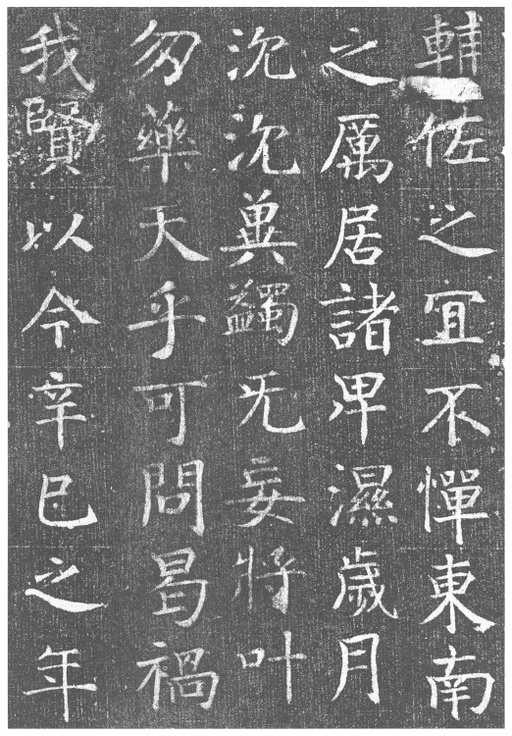 輔佐之宜不憚東南
之厲居諸卑濕歲月
沈沈冀蠲无妄將叶
勿藥天乎可問曷禍
我賢以今辛巳之年